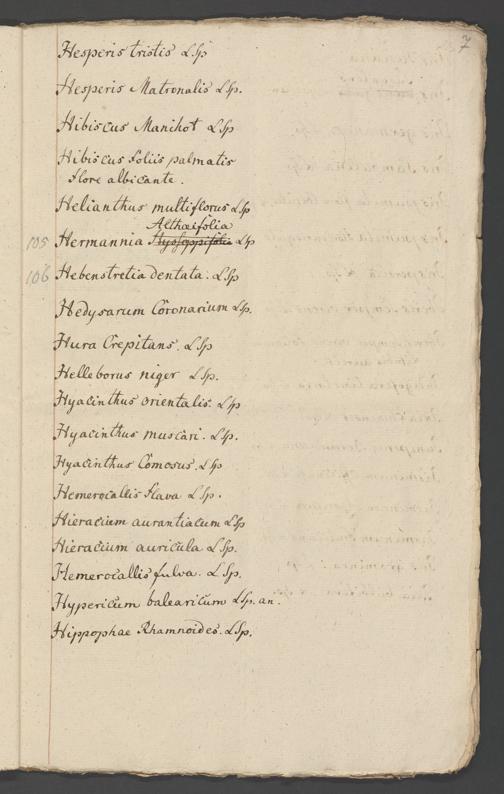 7
Hesperis tristis LSp
Hesperis Matronalis LSp.
Hibiscus Manihot LSp
Hibiscus foliis palmatis
flore albicante.
Helianthus multiflorus LSp
Althaifolia
105 Hermannia Hyssoppifolia LSp
106 Hebenstretia dentata. LSp
Hedysarum Coronarium LSp.
Hura Crepitans. LSp
Helleborus niger LSp.
Hyacinthus orientalis. LSp
Hyacinthus muscari. LSp.
Hyacinthus Comosus. LSp
Hemerocallis flava LSp.
Hieracium aurantiacum LSp
Hieracium auricula LSp.
Hemerocallis fulva. LSp.
Hypericum balearicum LSp. an.
Hippophae Rhamnoides. LSp.